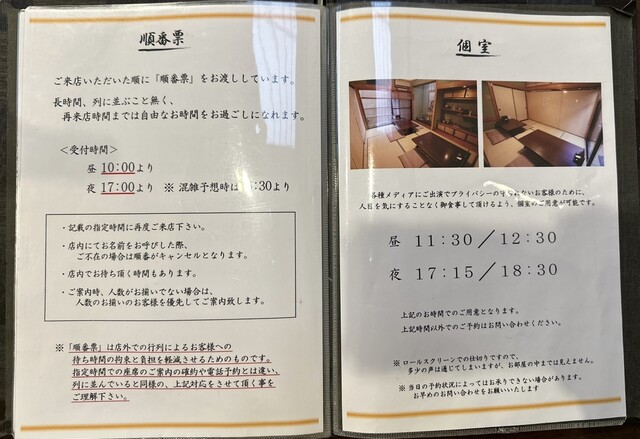 順番票
ご来店いただいた順に「順番票」をお渡ししています。
長時間、列に並ぶこと無く、
再来店時間までは自由なお時間をお過ごしになれます。
＜受付時間＞
昼 10:00より
夜 17:00より ※ 混雑予想時は :30より
・記載の指定時間に再度ご来店下さい。
・店内にてお名前をお呼びした際、
ご不在の場合は順番がキャンセルとなります。
・店内でお待ち頂く時間もあります。
・ご案内時、人数がお揃いでない場合は、
人数のお揃いのお客様を優先してご案内致します。
※「順番票」は店外での行列によるお客様への
待ち時間の拘束と負担を軽減させるためのものです。
指定時間での座席のご案内の確約や電話予約とは違い、
列に並んでいると同様の、上記対応をさせて頂く事を
ご理解下さい。
個室
各種メディアにご出演でプライバシーの守られないお客様のために、
人目を気にすることなく御食事して頂けるよう、個室のご用意が可能です。
昼 11:30／12:30
夜 17:15／18:30
上記のお時間でのご用意となります。
上記時間以外でのご予約はお問い合わせください。
※ ロールスクリーンでの仕切りですので、
多少の声は通じてしまいますが、お部屋の中までは見えません。
※ 当日の予約状況によってはお承りできない場合があります。
お早めのお問い合わせをお願いいたします